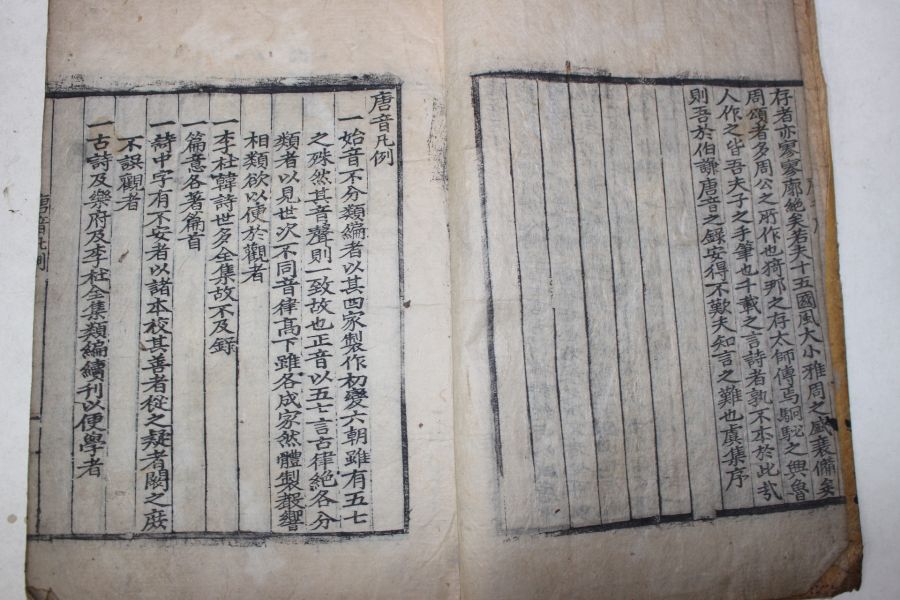 存者亦寥寥廓絶矣若夫十五國風大小雅周之盛衰備矣
周頌者多周公之所作也猗那之存太師傳焉駉駜之興魯
人作之皆吾夫子之手筆也千載之言詩者孰不本於此哉
則吾於伯謙唐音之錄安得不歎夫知言之難也虞集序
唐音凡例
一始音不分類編者以其四家製作初變六朝雖有五七
之殊然其音聲則一致故也正音以五七言古律絶各分
類者以見世次不同音律高下雖各成家然體製聲響
相類欲以便於觀者
一李杜韓詩世多全集故不及錄
一篇意各著篇首
一詩中字有不安者以諸本校其善者從之疑者闕之庶
不誤觀者
一古詩及樂府及李杜全集類編續刊以便學者
唐音凡例